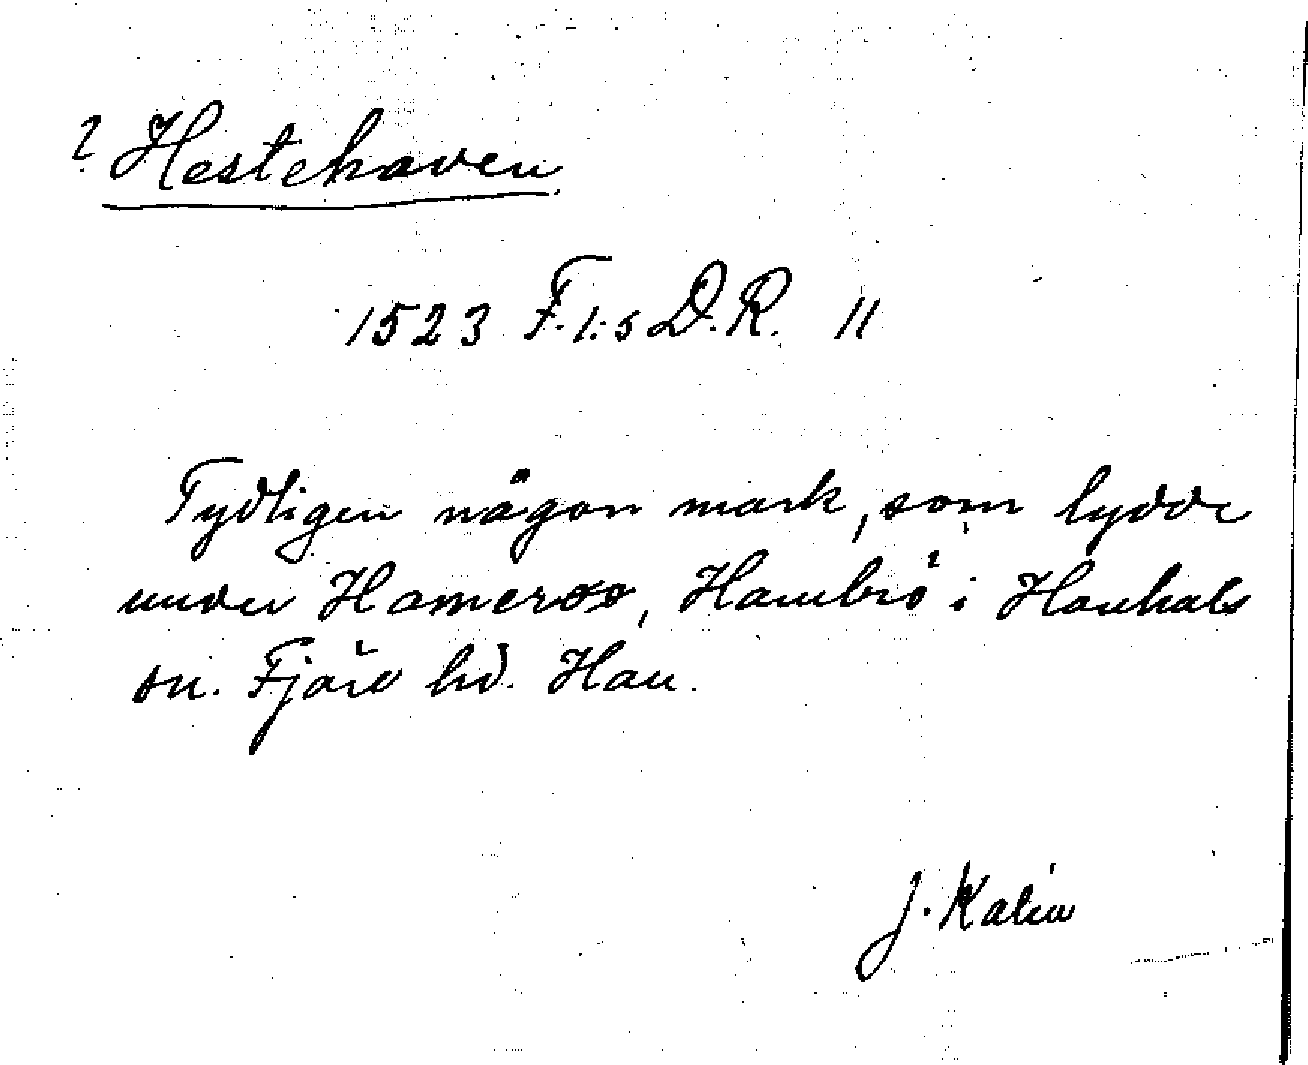 ? Hestehaven
1523 F. 1:s D.R. 11
Tydligen någon mark, som lydde
under Hamerøø, Hambrö i Hanhals
sn. Fjäre hd. Hall.
J. Kalén